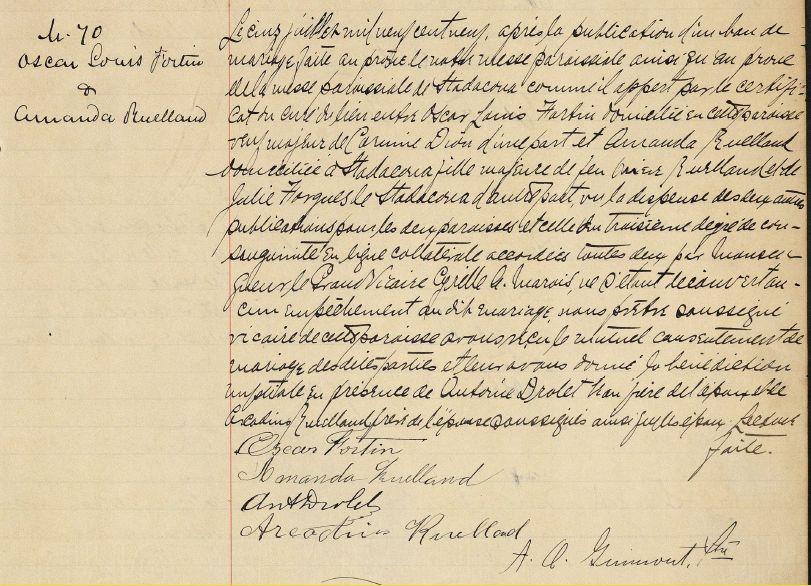 M. 70
Oscar Louis Fortin
&
Amanda Ruelland
Le cinq juillet mil neuf cent neuf, après la publication d'un ban de
mariage faite au prône de notre messe paroissiale ainsi qu'au prône
de la messe paroissiale de Stadacona comme il appert par le certifi-
cat du curé du lieu entre Oscar Louis Fortin domicilié en cette paroisse
veuf majeur de Carmine Dion d'une part et Amanda Ruelland
domiciliée à Stadacona fille majeure de feu Ruelland et de
Julie Forgues de Stadacona d'autre part, vu la dispense des deux autres
publications pour les deux paroisses et celle du troisième degré de con-
sanguinité en ligne collatérale accordées toutes deux par Monsei-
gneur le Grand Vicaire Cyrille A. Marois, ne s'étant découvert au-
cun empêchement au dit mariage, nous prêtre soussigné
vicaire de cette paroisse avons reçu le mutuel consentement de
mariage des dites parties et leur avons donné la bénédiction
nuptiale en présence de Antoine Drolet beau frère de l'époux et de
Arcadius Ruelland frère de l'épouse soussignés ainsi que les époux. Lecture
faite.
Oscar Fortin
Amanda Ruelland
Ant Drolet
Arcadius Ruelland
A. O. Guimont, Ptre